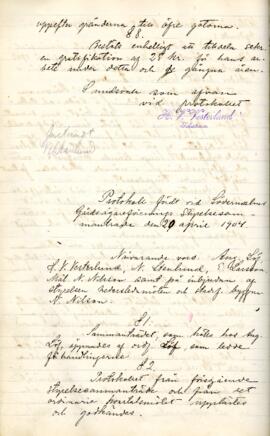 uppefter gränderna till öfre gatorna.
§ 8.
Beslöts enhelligt att tilldela sekr.
en gratifikation af 25 kr. för hans ar-
bete under detta och gångna åren.
Sundsvall som ofvan
vid protokollet
H. V. Vesterlund
Justeradt
Protokoll fördt vid Södermalms
Gårdsägareförenings Styrelsesam-
manträde den 20 april 1904.
Närvarande voro. Aug. Löf,
H. V. Vesterlund, N. Stenlund, E. Karsson
Nils N. Nilson samt på inbjudan af
styrelsen
N. Nilson.
§ 1.
Sammanträdet, som hölls hos Aug.
Löf, öppnades af ordf. Löf, som ledde
förhandlingarne
§ 2.
Protokollet från föregående
styrelsesammanträde och från det
ordinarie upplästes
och godkändes.